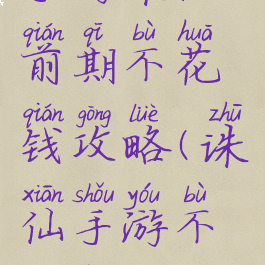 qián qī bù huā
前期不花
qián gōng lüè zhū
钱攻略(诛
xiān shǒu yóu bù
仙手游不